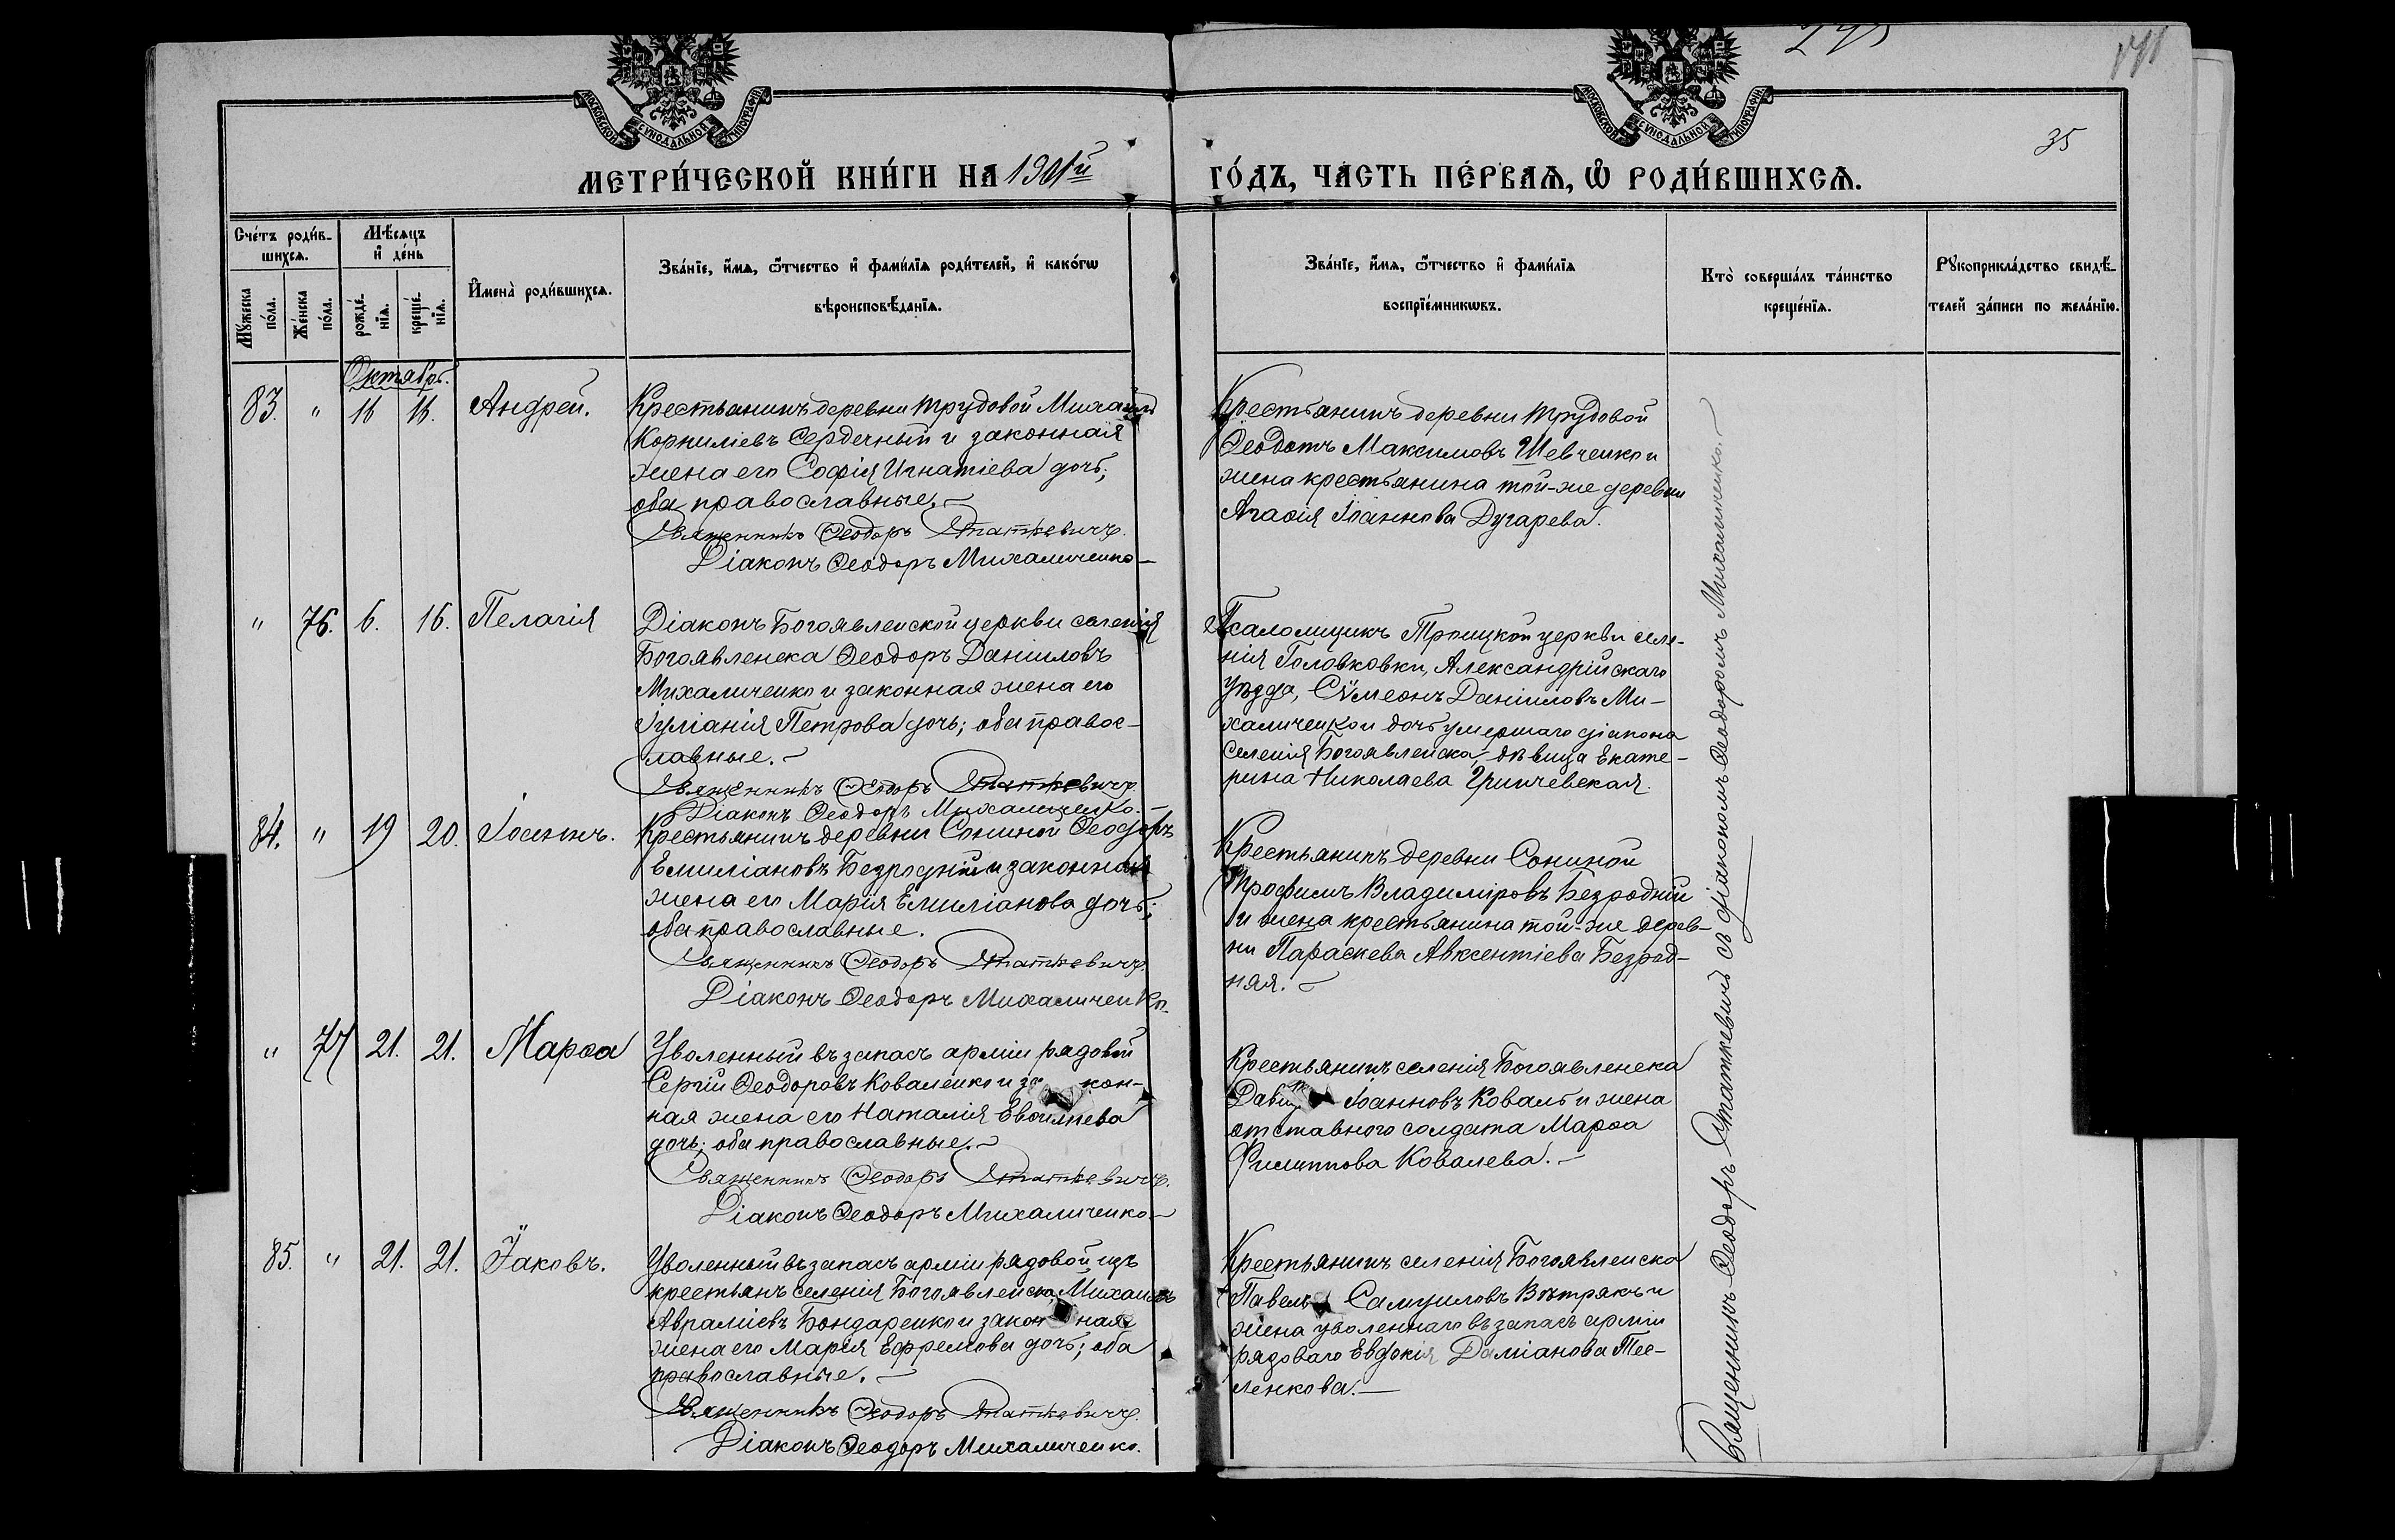 МОСКОВСКОЙ СѴНОДАЛЬНОЙ ТИПОГРАФІИ
МОСКОВСКОЙ СѴНОДАЛЬНОЙ ТИПОГРАФІИ
35
МЕТРИ́ЧЕСКОЙ КНИ́ГИ НА 1901й ГО́ДЪ, ЧА́СТЬ ПЕ́РВАѦ, Ѡ҆ РОДИ́ВШИХСѦ.
Сче́тъ роди́в-
шихсѧ.
Мꙋ́жеска по́ла.
Же́нска по́ла.
Мѣ́сѧцъ
и҆ де́нь
рожде́-
нїѧ.
креще́-
нїѧ.
И҆мена̀ роди́вшихсѧ.
Зва́нїе, и҆́мѧ, ѻ҆́тчество и҆ фами́лїѧ роди́телей, и҆ како́гѡ
вѣроисповѣ́данїѧ.
Зва́нїе, и҆́мѧ, ѻ҆́тчество и҆ фами́лїѧ
воспрїе́мникѡвъ.
Кто̀ соверша́лъ та́инство
креще́нїѧ.
Рꙋкоприкла́дство свидѣ́-
телей за́писи по жела́нїю.
Октябрь.
83. " 16 16. Андрей.
Крестьянинъ деревни Трудовой Михаилъ
Корниліевъ Сердечный и законная
жена его Софія Игнатіева дочь;
оба православные.
Священникъ Ѳеодоръ Статкевичъ.
Діаконъ Ѳеодоръ Михаличенко
Крестьянинъ деревни Трудовой
Ѳеодотъ Максимовъ Шевченко и
жена крестьянина той-же деревни
Агаѳія Іоаннова Дугарева.
" 76. 6. 16. Пелагія
Діаконъ Богоявленской церкви селенія
Богоявленска Ѳеодоръ Даніиловъ
Михаличенко и законная жена его
Іуліанія Петрова дочь; оба правос-
лавные.
Священникъ Ѳеодоръ Статкевичъ.
Діаконъ Ѳеодоръ Михаличенко.
Псаломщикъ Троицкой церкви селе-
нія Головковки, Александрійскаго
уѣзда, Сѵмеонъ Даніиловъ Ми-
халиченко и дочь умершаго діакона
селенія Богоявленска, дѣвица Екате-
рина Николаева Гринчевская.
84. " 19 20. Іоаннъ.
Крестьянинъ деревни Сониной Ѳеодоръ
Емиліановъ Безродній и законная
жена его Марія Емиліанова дочь;
оба православные.
Священникъ Ѳеодоръ Статкевичъ.
Діаконъ Ѳеодоръ Михаличенко.
Крестьянинъ деревни Сониной
Трофимъ Владиміровъ Безродній
и жена крестьянина той-же дерев-
ни Параскева Авксентіева Безрод-
няя.
" 77 21. 21. Марѳа
Уволенный въ запасъ арміи рядовой
Сергій Ѳеодоровъ Коваленко и за кон-
ная жена его Наталія Евѳиміева
дочь; оба православные.
Священникъ Ѳеодоръ Статкевичъ.
Діаконъ Ѳеодоръ Михаличенко
Крестьянинъ селенія Богоявленска
Давидъ Іоанновъ Коваль и жена
отставного солдата Марѳа
Филиппова Ковалева.
85. " 21. 21. Іаковъ.
Уволенный въ запасъ арміи рядовой изъ
крестьянъ селенія Богоявленска, Михаилъ
Авраміевъ Бондаренко и закон ная
жена его Марія Ефремова дочь; оба
православные.
Священникъ Ѳеодоръ Статкевичъ.
Діаконъ Ѳеодоръ Михаличенко.
Крестьянинъ селенія Богоявленска
Павелъ Самуиловъ Вѣтрякъ и
жена уволеннаго въ запасъ арміи
рядоваго Евдокія Даміанова Тес-
ленкова.
Священникъ Ѳеодоръ Статкевичъ съ діакономъ Ѳеодоромъ Михаличенко.